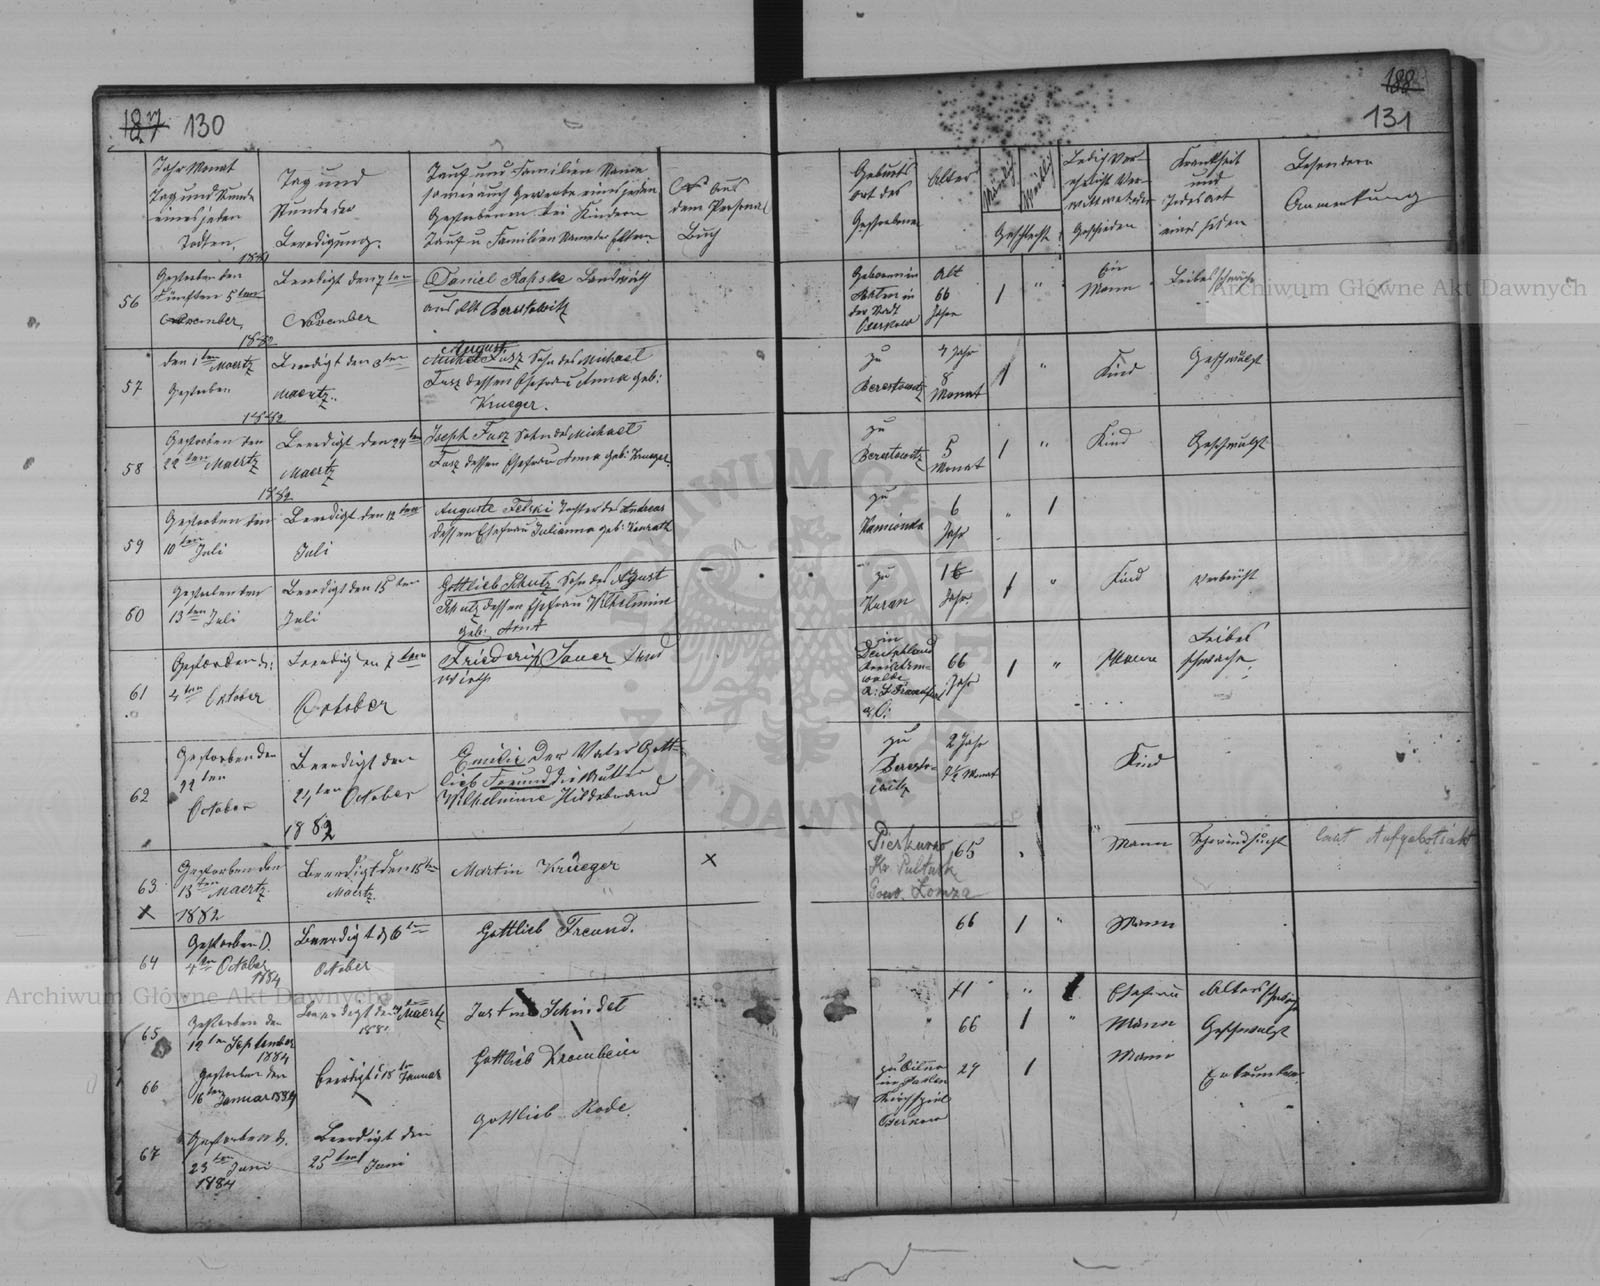 187 130
Jahr Monat
Tag und Stunde
eines jeden
Todten.
Tag und
Stunde der
Beerdigung.
Tauf und Familien Name
sowie auch Gewerbe eines jeden
Gestorbenen bei Kindern
Tauf u Familien Name der Eltern.
aus
dem Personal
Buch
56
1881
Gestorben den
Fünften 5ten
November
Beerdigt den 7ten
November
Daniel Rapske Landwirth
aus Alt Berestowitz
57
1882
den 1ten Maertz
Gestorben
Beerdigt den 3ten
Maertz.
August
Michel Fusz Sohn des Michael
Fusz dessen Ehefrau Anna geb:
Krueger.
58
1882
Gestorben den
22ten Maertz
Beerdigt den 24ten
Maertz
Joseph Fusz Sohn des Michael
Fusz dessen Ehefrau Anna geb: Krueger.
59
1882
Gestorben den
10ten Juli
Beerdigt den 12ten
Juli
Auguste Felski Tochter des Andreas
dessen Ehefrau Julianna geb:
60
Gestorben den
13ten Juli
Beerdigt den 15ten
Juli
Gottlieb Schutz Sohn des August
Schutz dessen Ehefrau Wilhelmine
geb: Arnt
61
Gestorben d:
4ten October
Beerdigt den 7ten
October
Friederich Sauer Land
wirth
62
Gestorben den
22ten
October
Beerdigt den
24ten October
1882
Emilie Der Vater Gott-
lieb Freund die Mutter
Wilhelmine Hildebrand
63
Gestorben den
13ten Maertz
Beerdigt den 15ten
Maertz
Martin Krueger
X
X 1882
64
Gestorben D.
4ten October
1884
Beerdigt d 6ten
October
Gottlieb Freund.
65
Gestorben den
12ten September
1884
Beerdigt den Maertz
188
Justine Schindel
66
Gestorben den
16ten Januar 1884
Beerdigt d 18ten Januar
Gottlieb Krembein
67
Gestorben d.
23ten Juni
1884
Beerdigt den
25ten Juni
Gottlieb Rode.
188
131
Geburts
ort des
Gestorbenen
Alter
Männlich
Weiblich
Geschlecht
Ledig Ver-
ehelicht Ver-
wittwet oder
Geschieden
Krankheit
und
Todesart
eines jeden
Besondere
Anmerkung
Geboren in
in
der Stadt
Alt
66
Jahre
1 "
Ein
Mann
Leibesschwäche
zu
Berestowitz
4 Jahr
8
Monat
1 "
Kind
Geschwulst
zu
Berestowitz
5
Monat
1 "
Kind
Geschwulst
zu
Kamionka
6
Jahr
" 1
zu
Kuran
16
Jahr
1 "
Kind
Verbrüht
in
Deutschland
66
Jahr
1 "
Mann
Leibes
schwäche
zu
Beresto-
witz
2 Jahr
7½ Monat
Kind
Pierkunowo
Kr Pultusk
Gouv. Lomza
65
"
Mann
Schwindsucht
laut Aufgebotsakt
66
1 "
Mann
71
"
Ehefrau
Altersschwäche
66
1 "
Mann
Geschwulst
in Polen
Kirchspiel
29
1
Mann
Ertrunken
Archiwum Główne Akt Dawnych
Archiwum Główne Akt Dawnych
ARCHIWUM GŁÓWNE AKT DAWNYCH